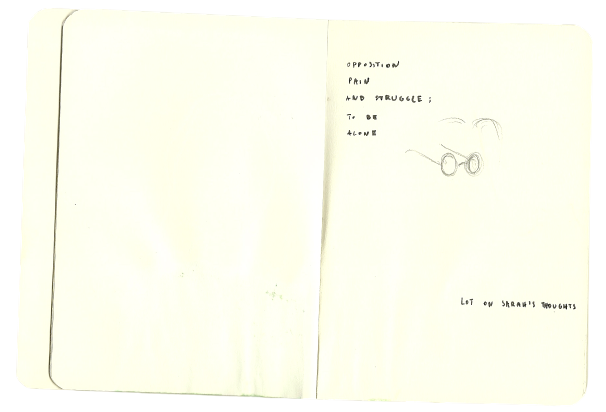 OPPOSITION
PAIN
AND STRUGGLE;
TO BE
ALONE
LOT ON SARAH'S THOUGHTS